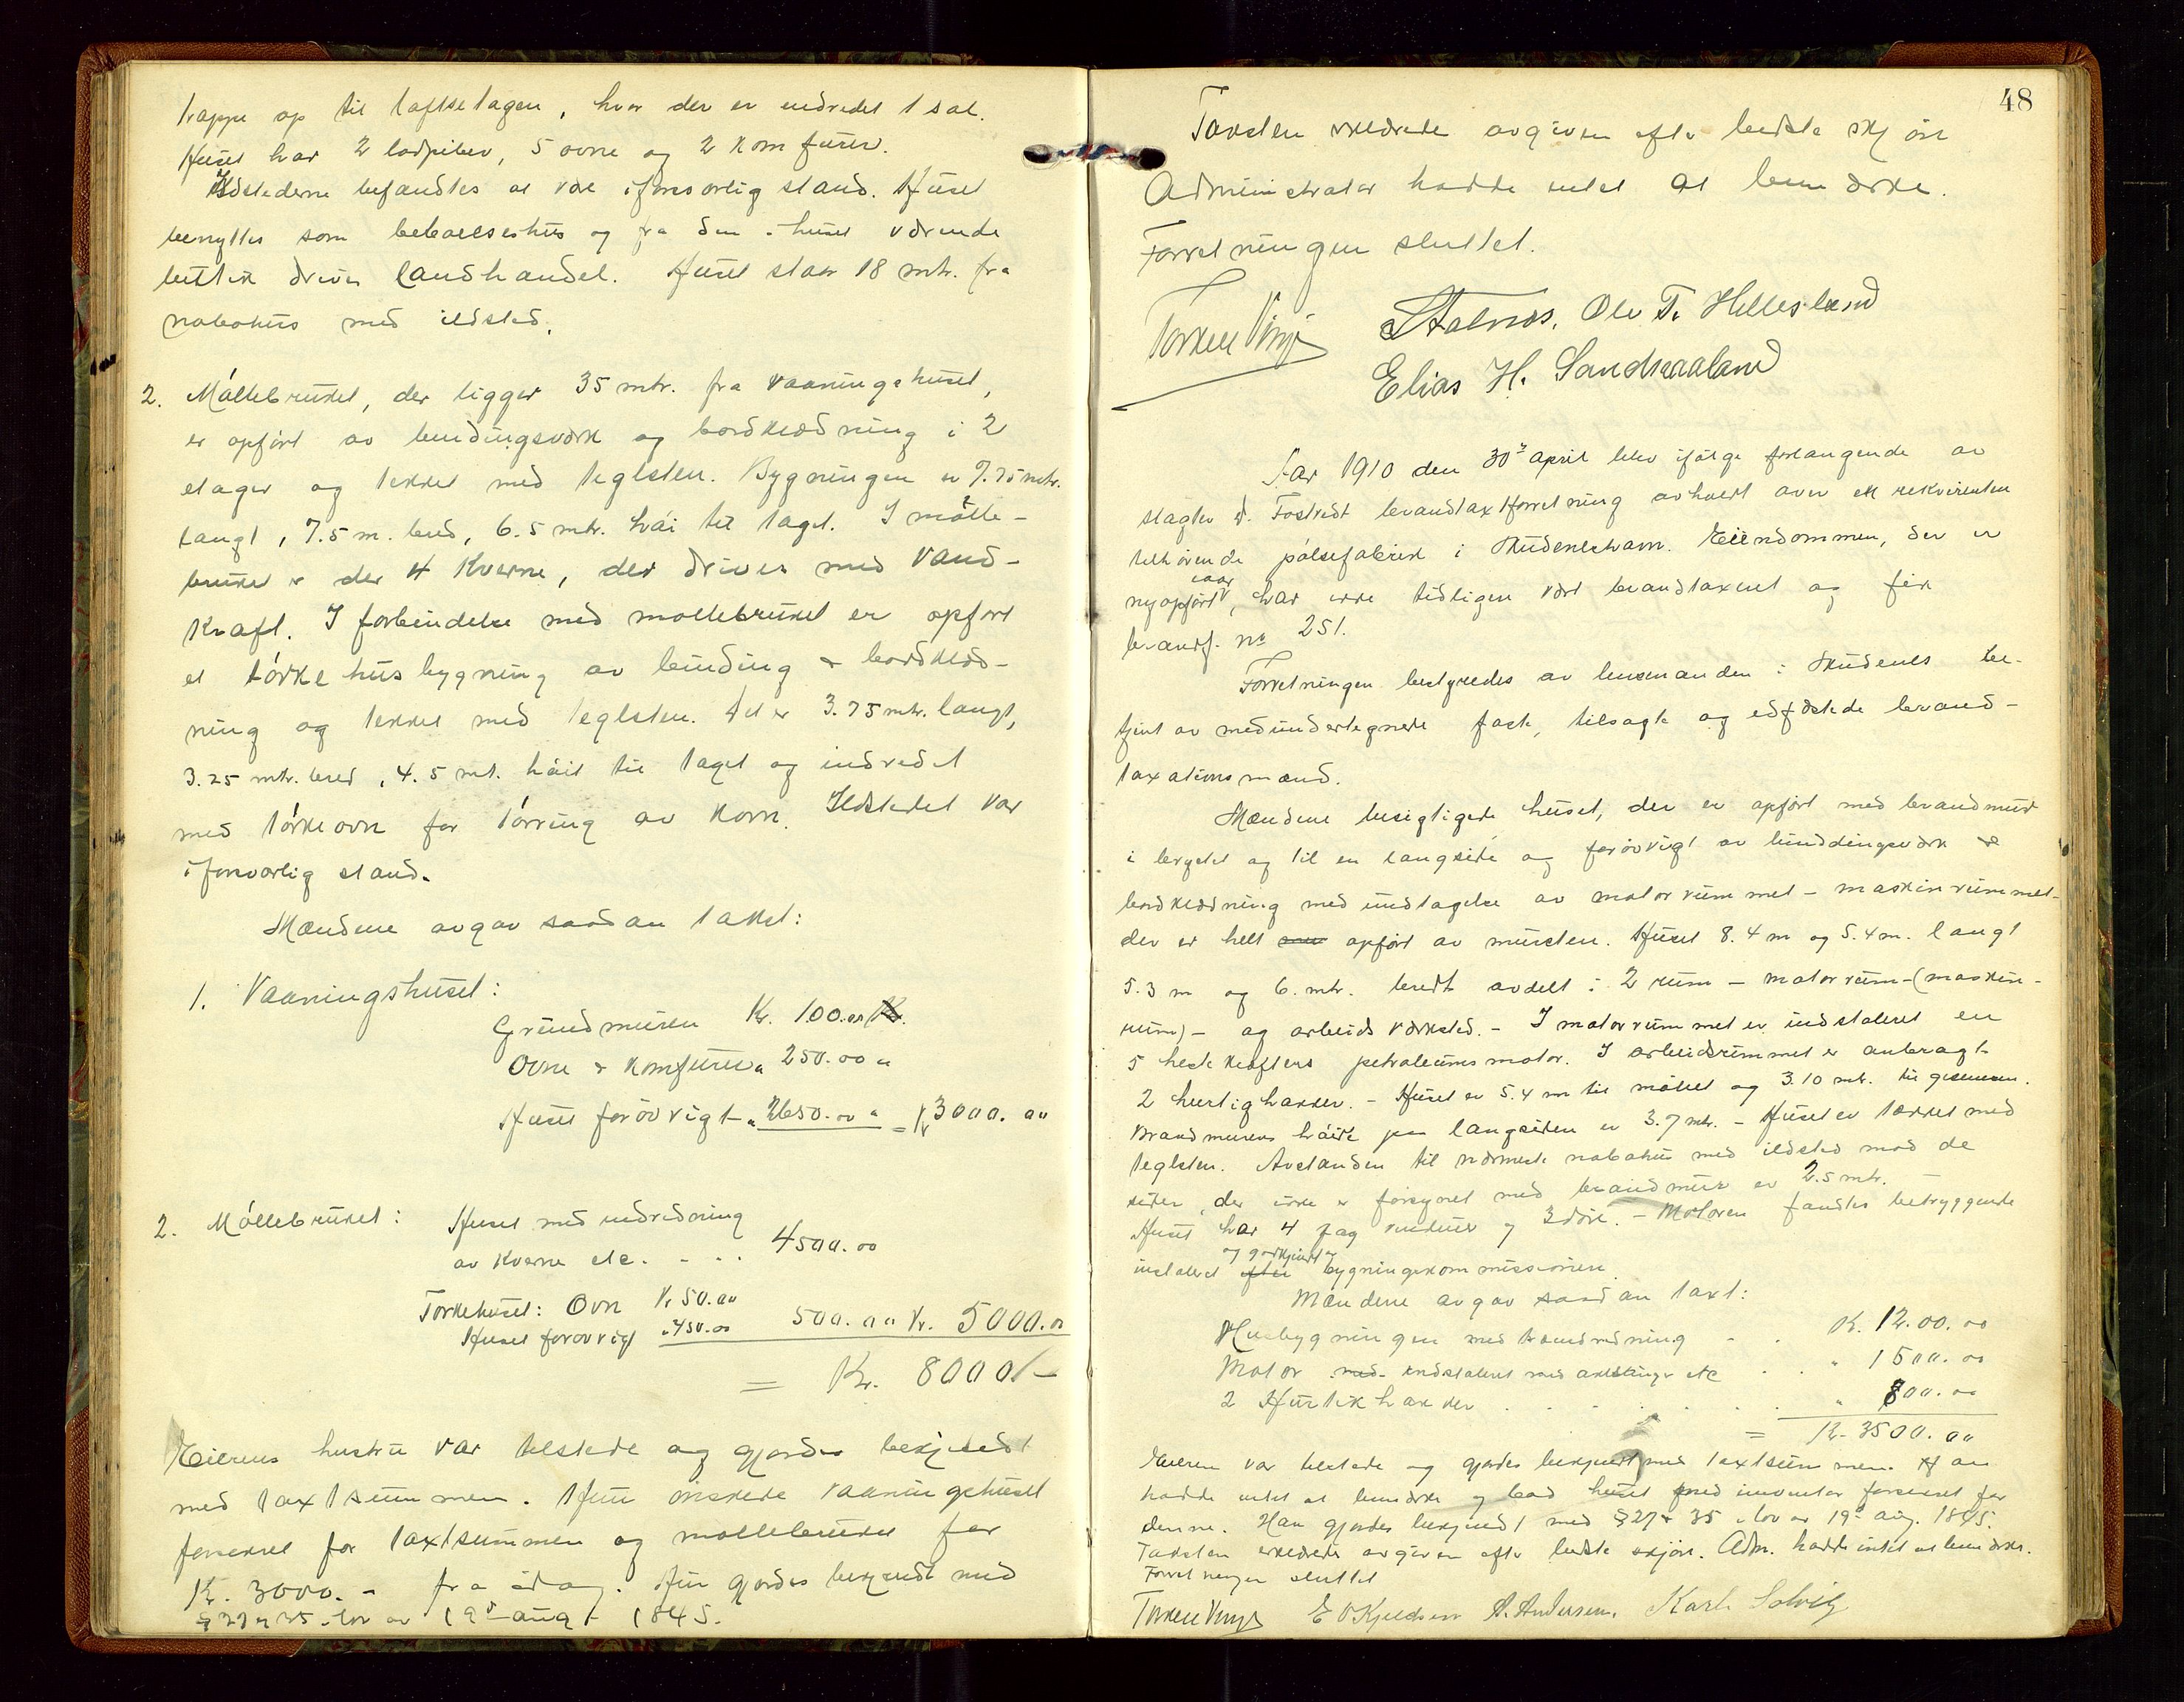 trappe op til loftsetagen, hvor der er indredet 1 sal.
Huset har 2 lodpiber, 5 ovne og 2 komfurer.
Ildstederne befandtes at være i forsvarlig stand. Huset
benyttes som beboelseshus og fra den i huset værende
butik drives landhandel. Huset staar 18 mtr. fra
nabohus med ildsted.
2. Møllebruket, der ligger 35 mtr. fra vaaningshuset,
er opført av bindingsverk og bordklædning i 2
etager og tekket med teglsten. Bygningen er 9.75 mtr.
langt, 7.5 m. bred, 6.5 mtr. høi til taget. I mølle-
bruket er der 4 Kverne, der drives med Vand-
kraft. I forbindelse med møllebruket er opført
et tørkehusbygning av binding & bordklæd-
ning og tekket med teglsten. Det er 3.75 mtr. langt,
3.25 mtr. bred, 4.5 mt. høit til taget og indredet
med tørkeovn for tørring av korn. Ildstedet var
i forsvarlig stand.
Mændene avgav saadan takst:
1. Vaaningshuset:
Grundmuren Kr. 100.00
Ovne & komfurer " 250.00 "
Huset forøvrigt " 2650.00 " = Kr 3000.00
2. Møllebruket: Huset med indredning
av kverne etc. - . . 4500.00
Tørkehuset: Ovn Kr 50.00
Huset forøvrigt " 450.00 500.00 Kr. 5000.00
= Kr. 8000/-
Eierens hustru var tilstede og gjordes bekjendt
med taxtsummen. Hun ønskede vaaningshuset
forsikret for taxtsummen og møllebruket for
Kr. 3000.- fra idag. Hun gjordes bekjendt med
§ 27 & 35 i lov av 19de aug. 1845.
48
Taksten erklærede avgiven efter bedste skjøn
Administrator hadde intet at bemærke.
Forretningen sluttet.
Torkell Vinje Stalnos. Ole T. Hillesland
Elias H. Sandhaaland
Aar 1910 den 30te april blev ifølge forlangende av
slagter Fostvedt brandtaxtforretning avholdt over en rekvirenten
tilhørende pølsefabrik i Skudeneshavn. Eiendommen, der er
nyopført iaar, har ikke tidligere vært brandtaxeret og fik
brandf. no 251.
Forretningen bestyredes av lensmanden i Skudenes be-
tjent av medundertegnede faste, tilsagte og edfæstede brand-
taxationsmænd.
Mændene besigtigede huset, der er opført med brandmur
i bryget og til en langside og forøvrigt av binddingsverk &
bordklædning med undtagelse av motorrummet - maskinrummet -
der er helt opført av mursten. Huset 8.4 m og 5.4 m. langt
5.3 m og 6. mtr. bredt avdelt i 2 rum - motorrum - (maskin-
rum) - og arbeidsværksted. - I motorrummet er indstaleret en
5 hestekrefters petroleumsmotor. I arbeidsrummet er anbragt
2 hurtighakker. - Huset er 5.4 m til mønet og 3.10 mtr. til gesimsen.
Brandmurens høide paa langsiden er 3.7 mtr. - Huset er tækket med
teglsten. Avstanden til nærmeste nabohus med ildsted mod de
sider, der ikke er forsynet med brandmur er 2.5 mtr. -
Huset har 4 fag vinduer og 3 døre. - Motoren fandtes betryggende
instaleret og godkjendt av bygningskommissionen.
Mændene avgav saadan taxt:
Husbygningen med indredning - . Kr. 12.00.00
Motor indstaleret med akslinger etc . " 1500.00
2 Hurtikhakker . . . . . . . " 800.00
= Kr. 3500.00
Eieren var tilstede og gjordes bekjendt med taxtsummen. Han
hadde intet at bemærke og bad huset med inventar forsikret for
denne. Han gjordes bekjendt med § 27 & 35 i lov av 19de aug. 1845.
Taksten erklæredes avgiven efter bedste skjøn. Adm. hadde intet at bemærke.
Forretningen sluttet
Torkell Vinje E O Kjeldsen A. Andersen. Karl Solvig